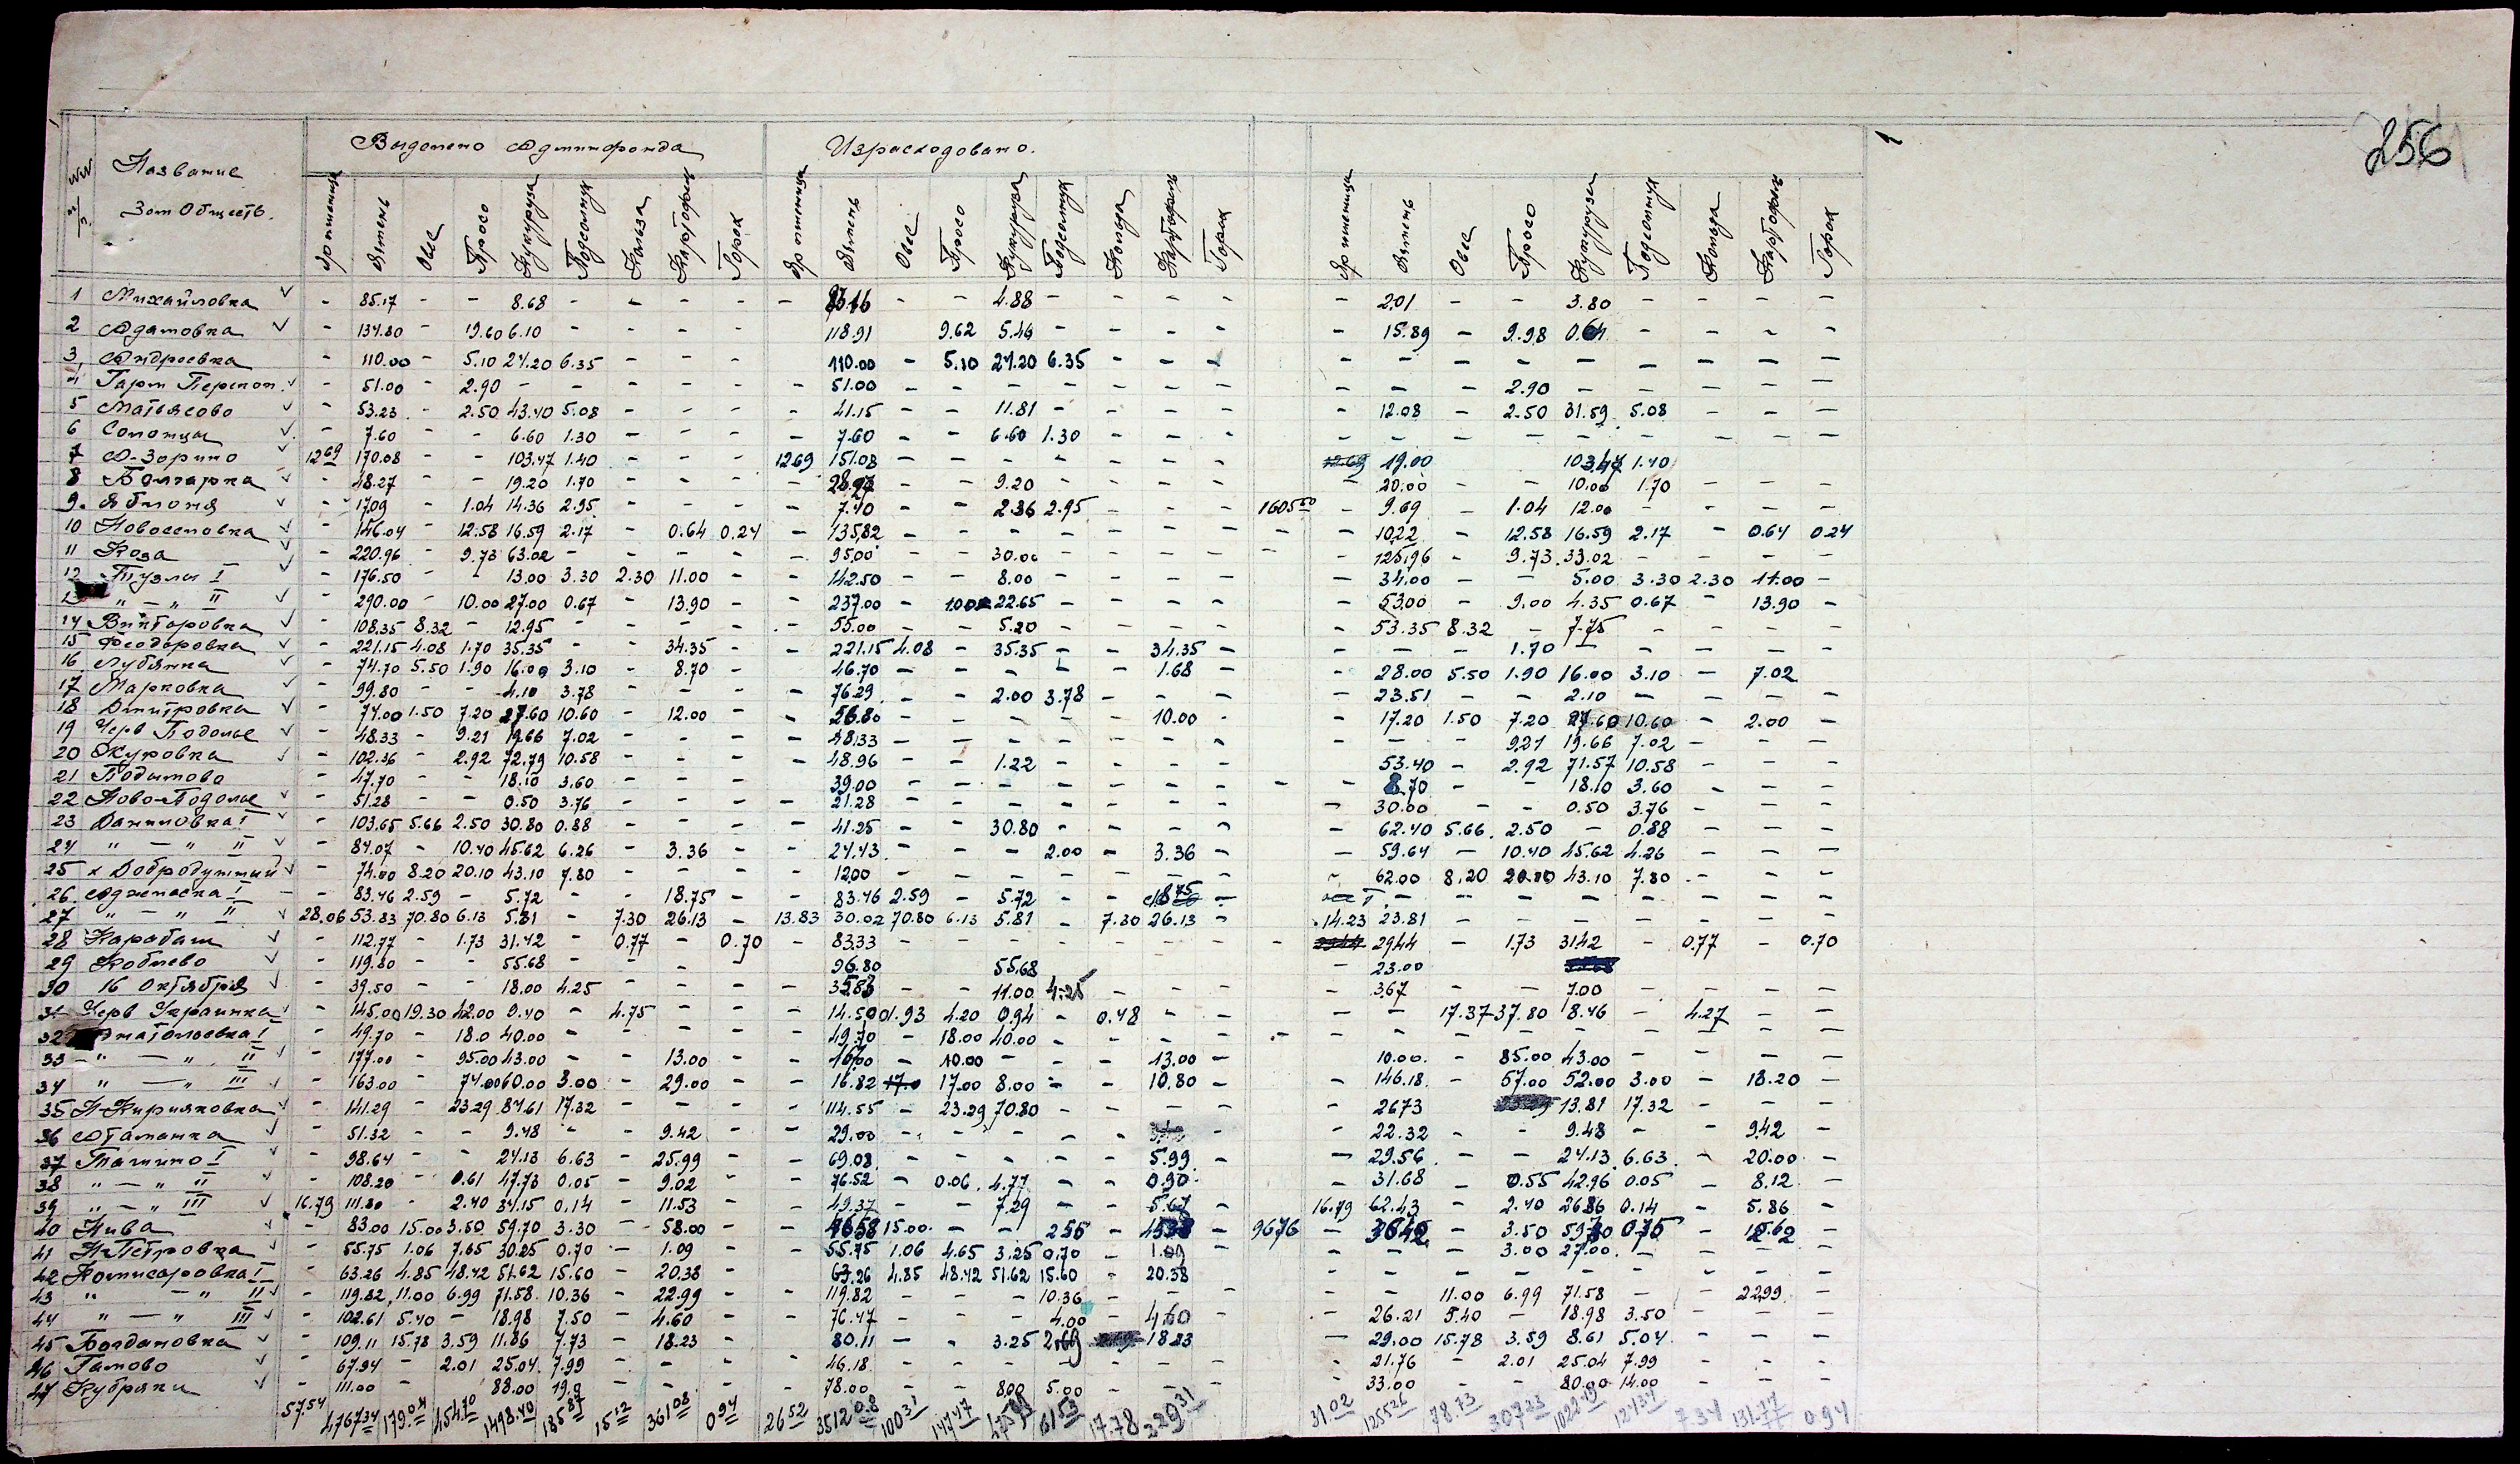 256
Название Зем Обществ. Выделено Админфонда Израсходовано.
Яр пшеница Ячмень Овес Просо Кукуруза Подсолнух Кольза Картофель Горох Яр пшеница Ячмень Овес Просо Кукуруза Подсолнух Картофель Горох Яр пшеница Ячмень Овес Просо Кукуруза Подсолнух Картофель Горох
1 Михайловка - 85.17 - - 8.68 - - - - - - - 4.88 - - - - - 2.01 - - 3.80 - - - -
2 Адамовка - 134.80 - 19.60 6.10 - - - - 118.91 9.62 5.46 - - - - - 15.89 - 9.98 0.64 - - - -
3 Андреевка - 110.00 - 5.10 27.20 6.35 - - - 110.00 - 5.10 27.20 6.35 - - - - - - - - - - - -
4 - 51.00 - 2.90 - - - - - - 51.00 - - - - - - - - - - 2.90 - - - - -
5 Матьясово - 53.23 - 2.50 43.40 5.08 - - - - 41.15 - - 11.81 - - - - - 12.08 - 2.50 31.59 5.08 - - -
6 - 7.60 - - 6.60 1.30 - - - - 7.60 - - 6.60 1.30 - - - - - - - - - - - -
7 А-Зорино 12 69 170.08 - - 103.47 1.40 - - - 12 69 151.08 - - - - - - - 19.00 103.47 1.40 - - -
8 Болгарка - 48.27 - - 19.20 1.70 - - - - - - 9.20 - - - - - 20.00 - - 10.00 1.70 - - -
9. Яблоня - 17.09 - 1.04 14.36 2.95 - - - - 7.40 - - 2.36 2.95 - - - 1605 - 9.69 - 1.04 12.00 - - - -
10 Новоселовка - 146.04 - 12.58 16.59 2.17 - 0.64 0.24 - 135.82 - - - - - - - - 10.22 - 12.58 16.59 2.17 - 0.64 0.24
11 Коза - 220.96 - 9.73 63.02 - - - - - 95.00 - - 30.00 - - - - - - 125.96 - 9.73 33.02 - - - -
12 Тузлы I - 176.50 - - 13.00 3.30 2.30 11.00 - - 142.50 - - 8.00 - - - - - 34.00 - - 5.00 3.30 2.30 11.00 -
13 " — " II - 290.00 - 10.00 27.00 0.67 - 13.90 - - 237.00 - 1.00 22.65 - - - - - 53.00 - 9.00 4.35 0.67 - 13.90 -
14 Викторовка - 108.35 8.32 - 12.95 - - - - - 55.00 - - 5.20 - - - - - 53.35 8.32 - 7.75 - - - -
15 Феодоровка - 221.15 4.08 1.70 35.35 - - 34.35 - - 221.15 4.08 - 35.35 - - 34.35 - - - - 1.70 - - - - -
16 Лубянка - 74.70 5.50 1.90 16.00 3.10 - 8.70 - - 46.70 - - - - - 1.68 - - 28.00 5.50 1.90 16.00 3.10 - 7.02
17 Марковка - 99.80 - - 4.10 3.78 - - - - 76.29 - - 2.00 3.78 - - - - 23.51 - - 2.10 - - - -
18 Дмитровка - 74.00 1.50 7.20 27.60 10.60 - 12.00 - - 56.80 - - - - - 10.00 - - 17.20 1.50 7.20 27.60 10.60 - 2.00 -
19 Черв Подолье - 48.33 - 9.21 19.66 7.02 - - - - 48.33 - - - - - - - - - - 9.21 19.66 7.02 - - -
20 Журовка - 102.36 - 2.92 72.79 10.58 - - - - 48.96 - - 1.22 - - - - 53.40 - 2.92 71.57 10.58 - - -
21 - 47.70 - - 18.10 3.60 - - - 39.00 - - - - - - - - - 8.70 - - 18.10 3.60 - - -
22 Ново-Подолье - 51.28 - - 0.50 3.76 - - - - 21.28 - - - - - - - - 30.00 - - 0.50 3.76 - - -
23 Даниловка I - 103.65 5.66 2.50 30.80 0.88 - - - - 41.25 - - 30.80 - - - - - 62.40 5.66 2.50 - 0.88 - - -
24 " — " II - 84.07 - 10.40 45.62 6.26 - 3.36 - - 24.43 - - - 2.00 - 3.36 - - 59.64 - 10.40 45.62 4.26 - - -
25 х Добродушний - 74.00 8.20 20.10 43.10 7.80 - - - - 12.00 - - - - - - - - 62.00 8.20 20.10 43.10 7.80 - - -
26. Аджиаска I - 83.46 2.59 - 5.72 - - 18.75 - - 83.46 2.59 - 5.72 - - 18.75 - - - - - - - - -
27 " — " II 28.06 53.83 70.80 6.13 5.81 - 7.30 26.13 - 13.83 30.02 70.80 6.13 5.81 - 7.30 26.13 - 14.23 23.81 - - - - - - -
28 Карабаш - 112.77 - 1.73 31.42 - 0.77 - 0.70 - 83.33 - - - - - - - - 29.44 - 1.73 31.42 - 0.77 - 0.70
29 Коблево - 119.80 - - 55.68 - - - 96.80 55.68 - 23.00
30 16 Октября - 39.50 - - 18.00 4.25 - - - - 35.83 - - 11.00 4.25 - - - - 3.67 - - 7.00 - - - -
31 Черв Украинка 145.00 19.30 42.00 9.40 - 4.75 - - 14.50 1.93 4.20 0.94 - 0.48 - - - - 17.37 37.80 8.46 - 4.27 - -
32 Анатольевка I - 49.70 - 18.0 40.00 - - - - - 49.70 - 18.00 40.00 - - - - - - - - - - - - -
33 " — " II - 177.00 - 95.00 43.00 - - 13.00 - - - 10.00 - - - 13.00 - 10.00 - 85.00 43.00 - - - -
34 " — " III - 163.00 - 74.00 60.00 3.00 - 29.00 - - 16.82 17.00 8.00 - - 10.80 - - 146.18 - 57.00 52.00 3.00 - 18.20 -
35 Н-Кирияковка - 141.29 - 23.29 84.61 17.32 - - - - 114.55 - 23.29 70.80 - - - - - 26.73 13.81 17.32 - - -
36 Атаманка - 51.32 - - 9.48 - - 9.42 - - 29.00 - - - - - - - 22.32 - - 9.48 - - 9.42 -
37 Ташино I - 98.64 - - 24.13 6.63 - 25.99 - - 69.08 - - - - - 5.99 - - 29.56 - - 24.13 6.63 - 20.00 -
38 " — " II - 108.20 - 0.61 47.73 0.05 - 9.02 - - 76.52 - 0.06 4.77 - - 0.90 - 31.68 - 0.55 42.96 0.05 - 8.12 -
39 " — " III 16.79 111.80 - 2.40 34.15 0.14 - 11.53 - 49.37 - - 7.29 - - 5.67 - 16.79 62.43 - 2.40 26.86 0.14 - 5.86 -
40 Нива - 83.00 15.00 3.50 59.70 3.30 - 58.00 - - 15.00 - - 2.55 - - 9676 - - 3.50 59.70 0.75 -
41 Н-Петровка - 55.75 1.06 7.65 30.25 0.70 - 1.09 - - 55.75 1.06 4.65 3.25 0.70 - 1.09 - - - - 3.00 27.00 - - - -
42 Комисаровка I - 63.26 4.85 48.42 51.62 15.60 - 20.38 - - 63.26 4.85 48.42 51.62 15.60 - 20.38 - - - - - - - - -
43 " — " II - 119.82 11.00 6.99 71.58 10.36 - 22.99 - - 119.82 - - - 10.36 - - - - - 11.00 6.99 71.58 - - 22.99 -
44 " — " III - 102.61 5.40 - 18.98 7.50 - 4.60 - - 76.47 - - - 4.00 - 4.60 - - 26.21 5.40 - 18.98 3.50 - - -
45 Богдановка - 109.11 15.78 3.59 11.86 7.73 - 18.23 - - 80.11 - - 3.25 2.69 18.23 - 29.00 15.78 3.59 8.61 5.04 - - -
46 - 67.94 - 2.01 25.04 7.99 - - - - 46.18 - - - - - - - - 21.76 - 2.01 25.04 7.99 - - -
47 Кубряки - 111.00 - 88.00 19.0 - - - - 78.00 - - 8.00 5.00 - - - - 33.00 - - 80.00 14.00 - - -
57.54 4767 34 179.04 454 70 1498.40 185 87 15 12 361 08 0 94 26 52 3512 08 100 31 147 47 61 53 17.78 229 31 31.02 1255 26 78.73 307 23 7.34 131.77 0.94